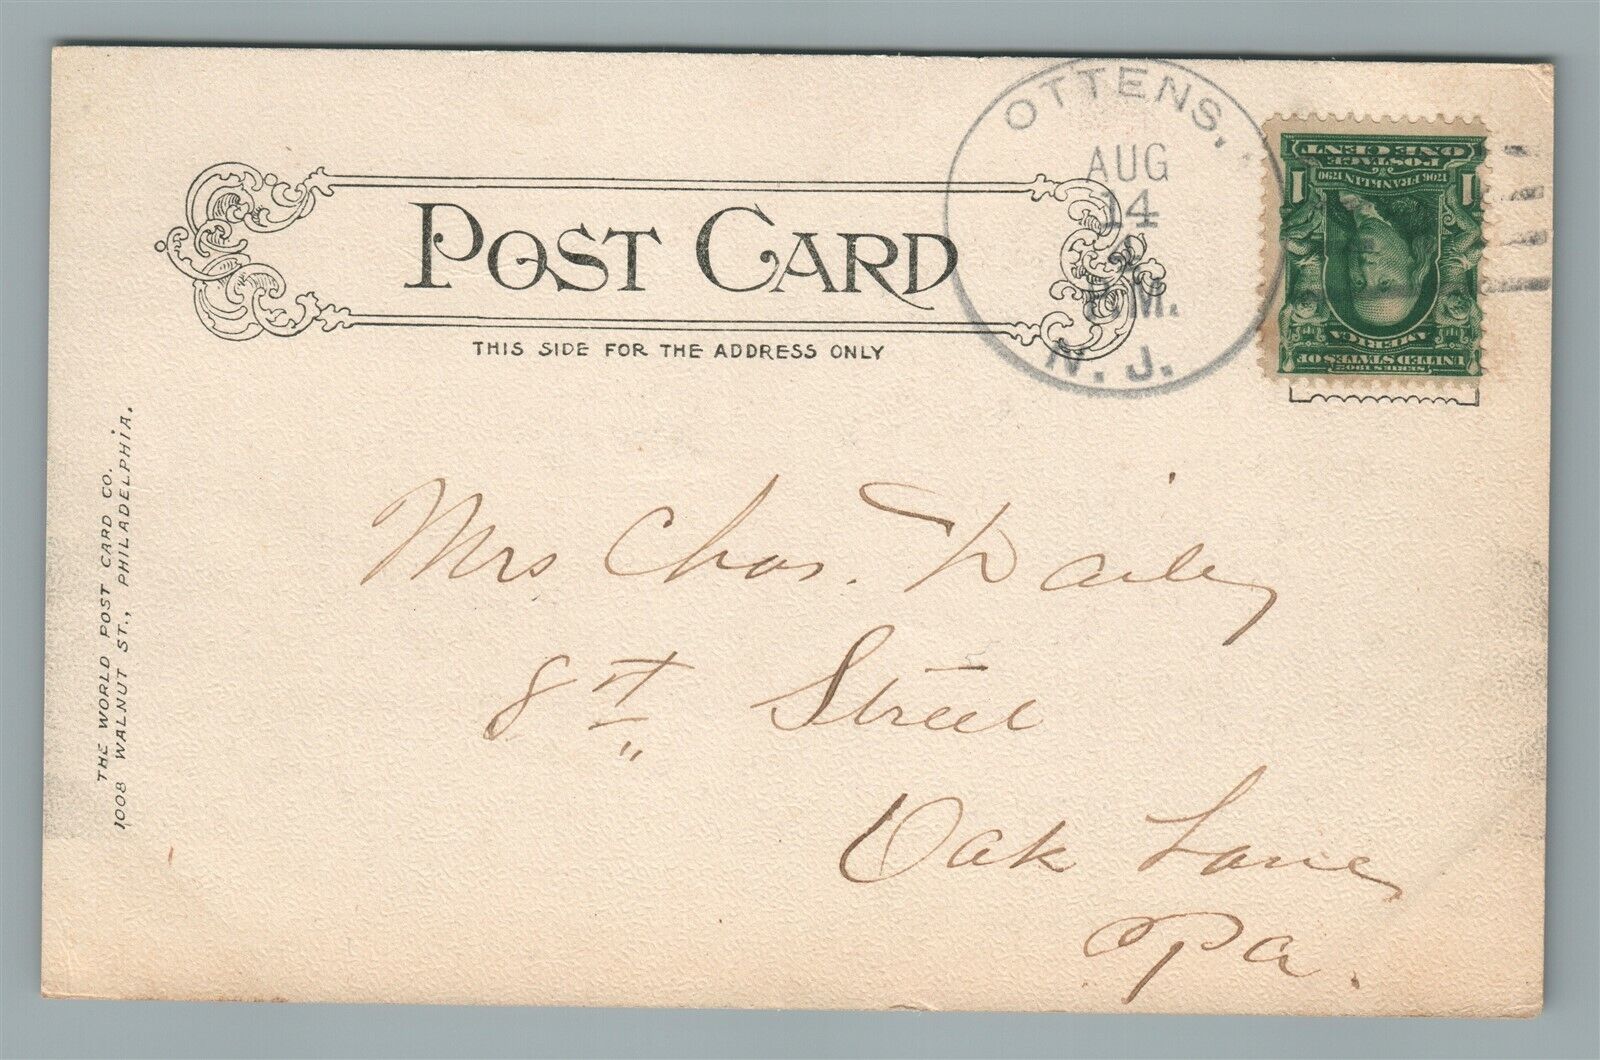 POST CARD
THIS SIDE FOR THE ADDRESS ONLY
OTTENS,
AUG
14
P.M.
N. J.
ONE CENT
POSTAGE
1706 FRANKLIN 1790
1 1
AMERICA
UNITED STATES OF
SERIES 1902
THE WORLD POST CARD CO.
1008 WALNUT ST., PHILADELPHIA.
Mrs Chas. Daily
8th Street
Oak Lane,
Pa.